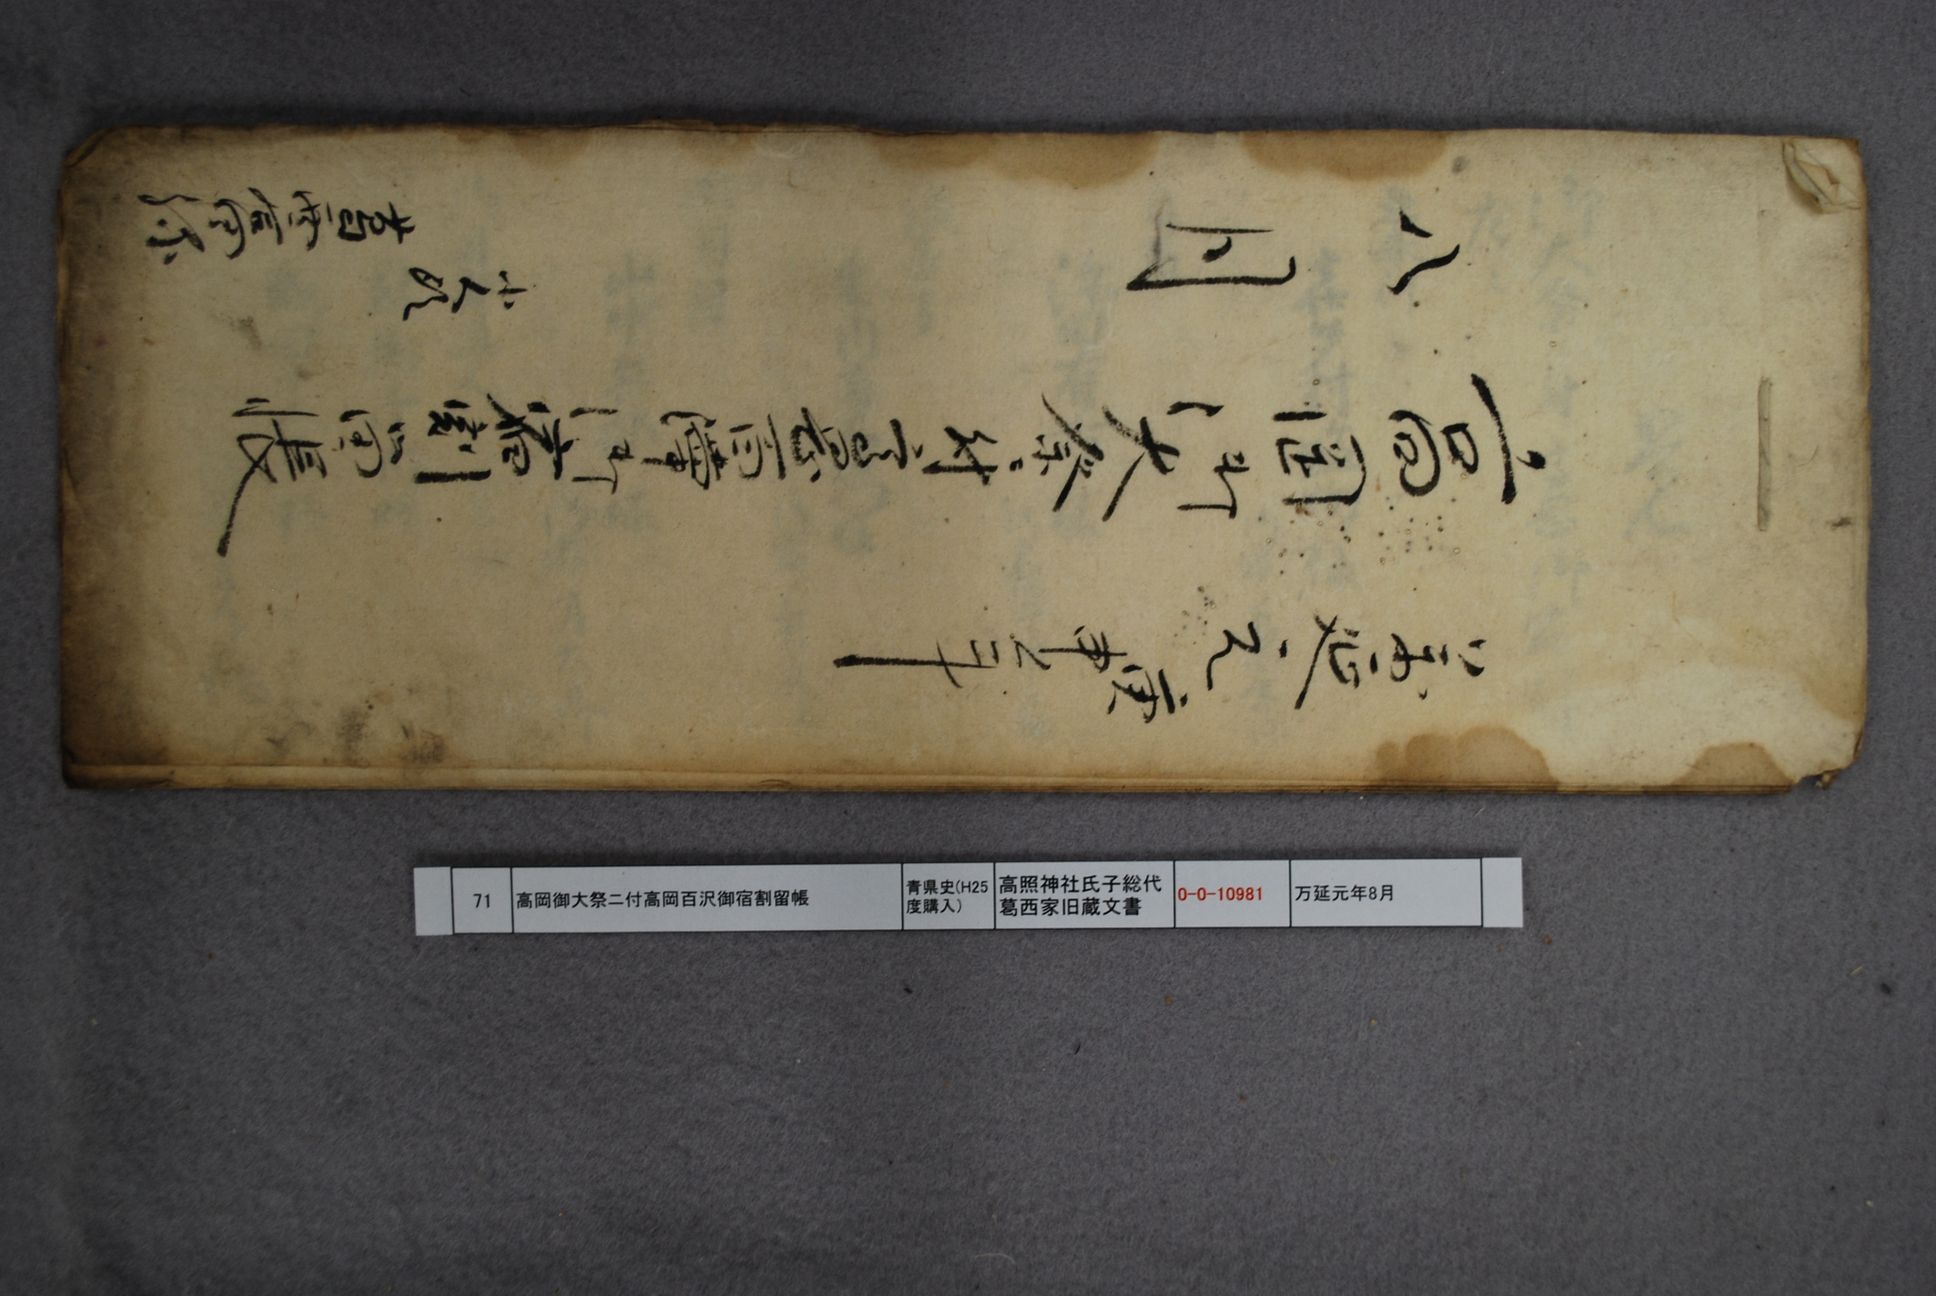 萬延元
庚申年
高岡御大祭付高岡百澤御宿割留帳
八月
71
高岡御大祭ニ付高岡百沢御宿割留帳
青県史(H25
度購入)
高照神社氏子総代
葛西家旧蔵文書
0-0-10981
万延元年8月